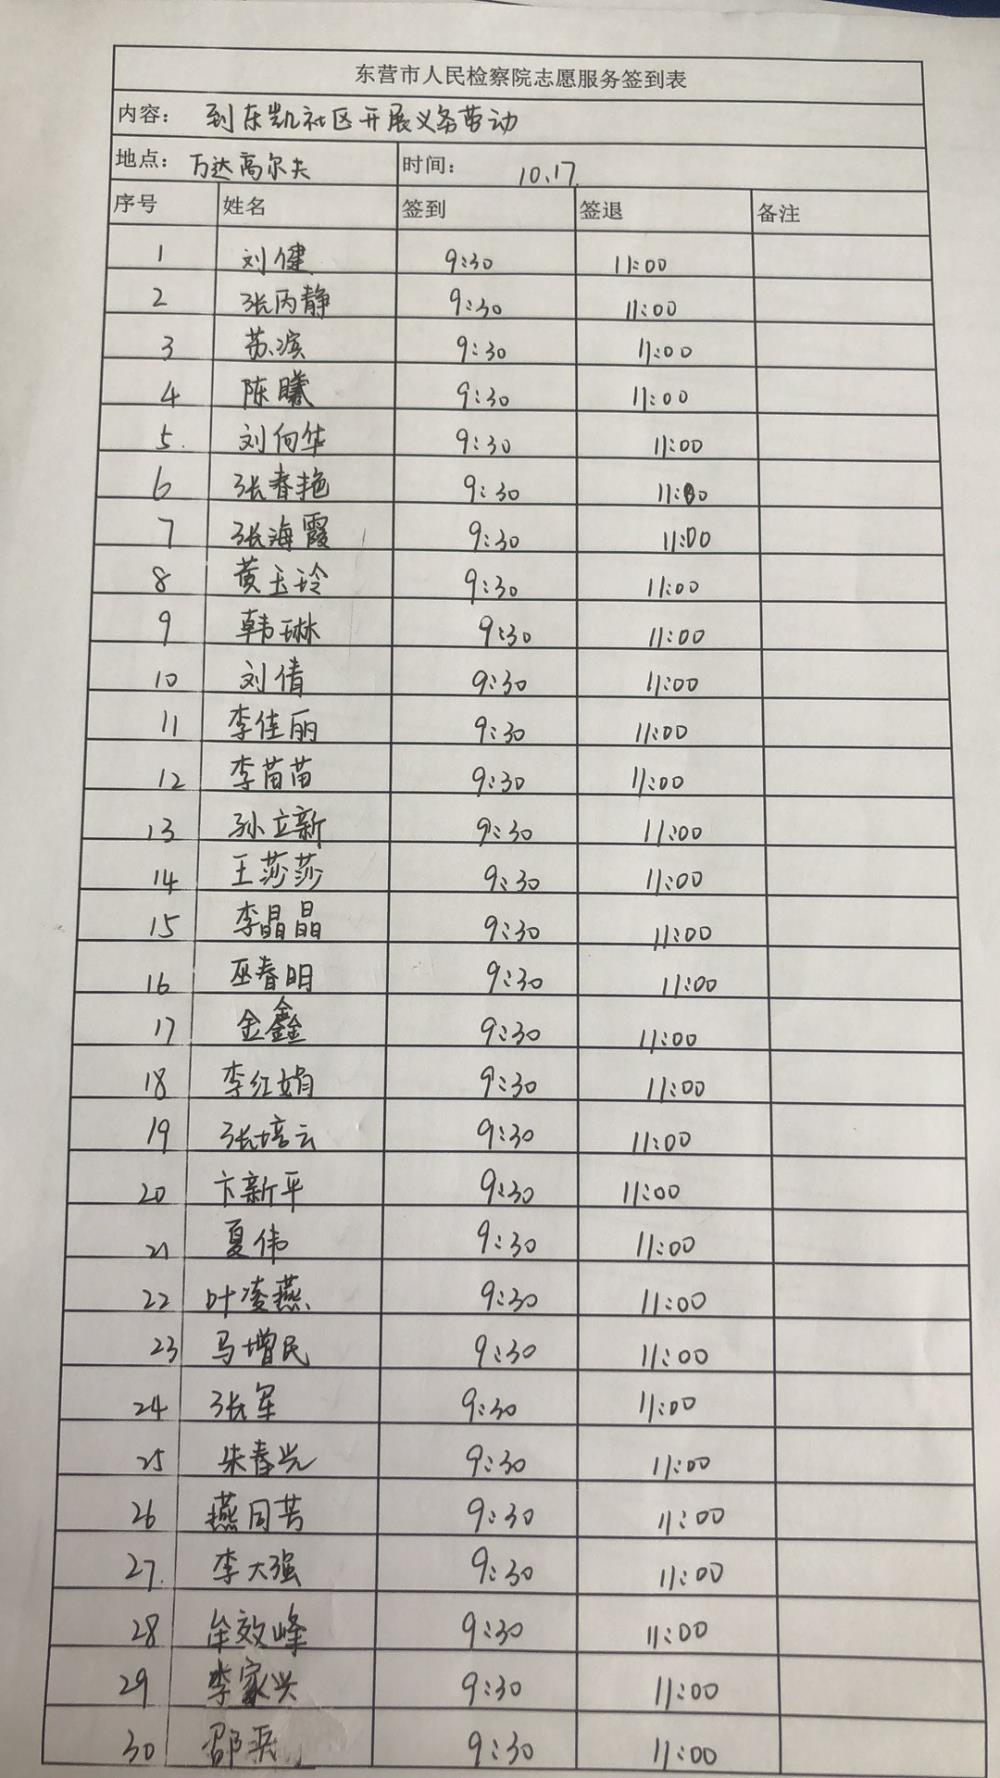 东营市人民检察院志愿服务签到表
内容： 到东凯社区开展义务劳动
地点： 万达高尔夫 时间： 10.17
序号 姓名 签到 签退 备注
1 刘健 9:30 11:00
2 张丙静 9:30 11:00
3 苏滨 9:30 11:00
4 陈曦 9:30 11:00
5 刘向华 9:30 11:00
6 张春艳 9:30 11:00
7 张海霞 9:30 11:00
8 黄玉玲 9:30 11:00
9 韩琳 9:30 11:00
10 刘倩 9:30 11:00
11 李佳丽 9:30 11:00
12 李苗苗 9:30 11:00
13 孙立新 9:30 11:00
14 王莎莎 9:30 11:00
15 李晶晶 9:30 11:00
16 巫春明 9:30 11:00
17 金鑫 9:30 11:00
18 李红娟 9:30 11:00
19 张培云 9:30 11:00
20 卞新平 9:30 11:00
21 夏伟 9:30 11:00
22 叶凌燕 9:30 11:00
23 马增民 9:30 11:00
24 张军 9:30 11:00
25 朱春光 9:30 11:00
26 燕同芳 9:30 11:00
27 李大强 9:30 11:00
28 牟效峰 9:30 11:00
29 李家兴 9:30 11:00
30 邵 9:30 11:00